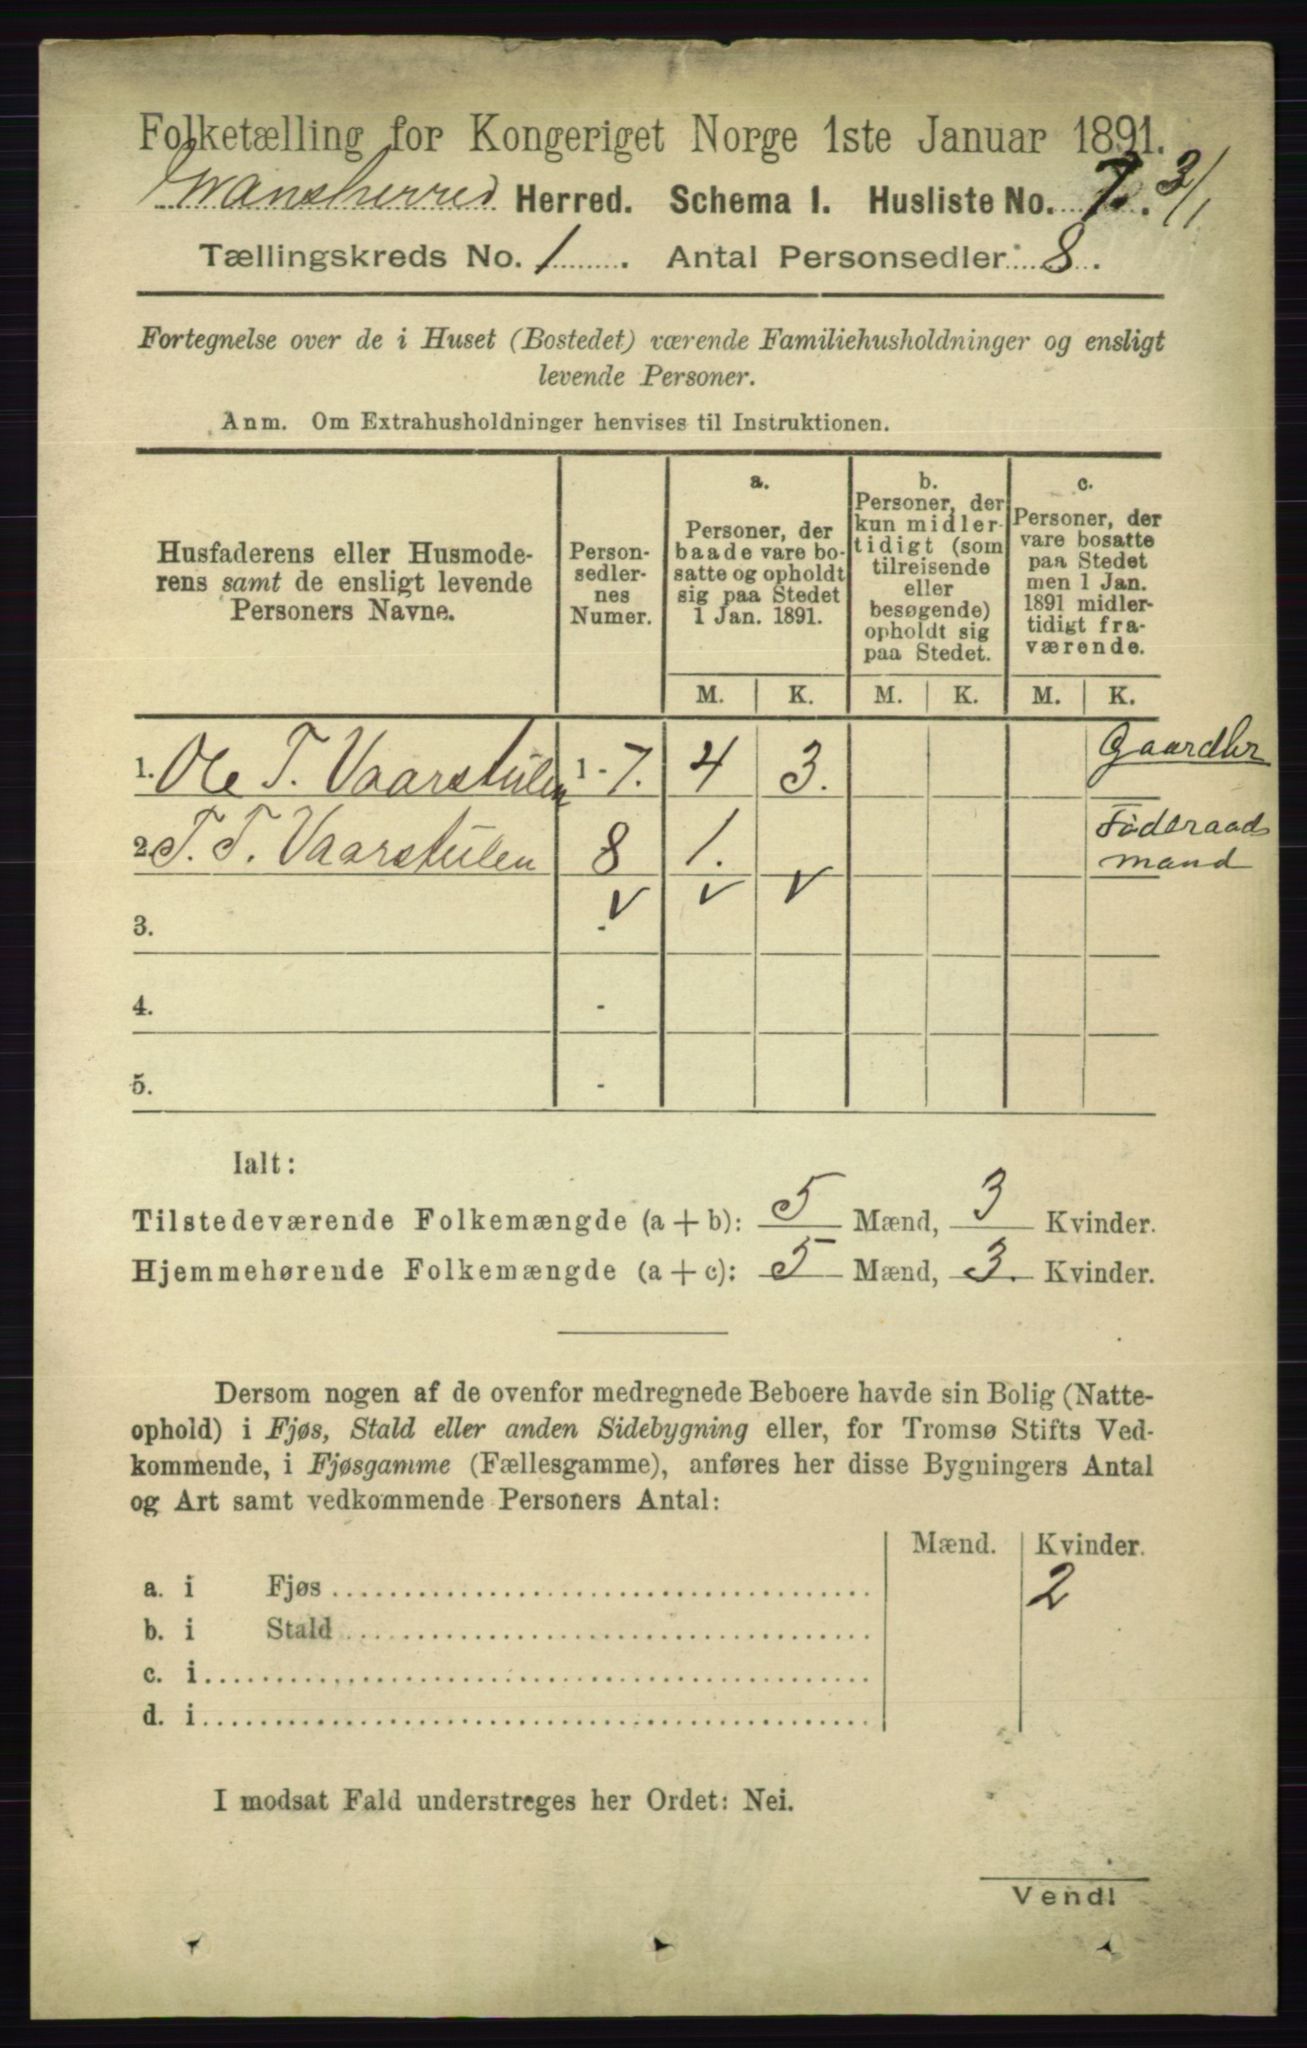 Folketælling for Kongeriget Norge 1ste Januar 1891.
Gransherred Herred. Schema 1. Husliste No. 7. 3/1
Tællingskreds No. 1 . Antal Personsedler 8.
Fortegnelse over de i Huset (Bostedet) værende Familiehusholdninger og ensligt
levende Personer.
Anm. Om Extrahusholdninger henvises til Instruktionen.
Husfaderens eller Husmode-
rens samt de ensligt levende
Personers Navne.
Person-
sedler-
nes
Numer.
a.
Personer, der
baade vare bo-
satte og opholdt
sig paa Stedet
1 Jan. 1891.
b.
Personer, der
kun midler-
tidigt (som
tilreisende
eller
besøgende)
opholdt sig
paa Stedet.
c.
Personer, der
vare bosatte
paa Stedet
men 1 Jan.
1891 midler-
tidigt fra-
værende.
M. K. M. K. M. K.
1. Ole T. Vaarstulen 1 - 7. 4 3. Gaardbr
2. T. T. Vaarstulen 8 1. Föderaads
mand
3. -
4. -
5. -
Ialt:
Tilstedeværende Folkemængde (a + b): 5 Mænd, 3 Kvinder.
Hjemmehørende Folkemængde (a + c): 5 Mænd, 3. Kvinder.
Dersom nogen af de ovenfor medregnede Beboere havde sin Bolig (Natte-
ophold) i Fjøs, Stald eller anden Sidebygning eller, for Tromsø Stifts Ved-
kommende, i Fjøsgamme (Fællesgamme), anføres her disse Bygningers Antal
og Art samt vedkommende Personers Antal:
Mænd. Kvinder.
a. i Fjøs 2
b. i Stald
c. i
d. i
I modsat Fald understreges her Ordet: Nei.
Vend!